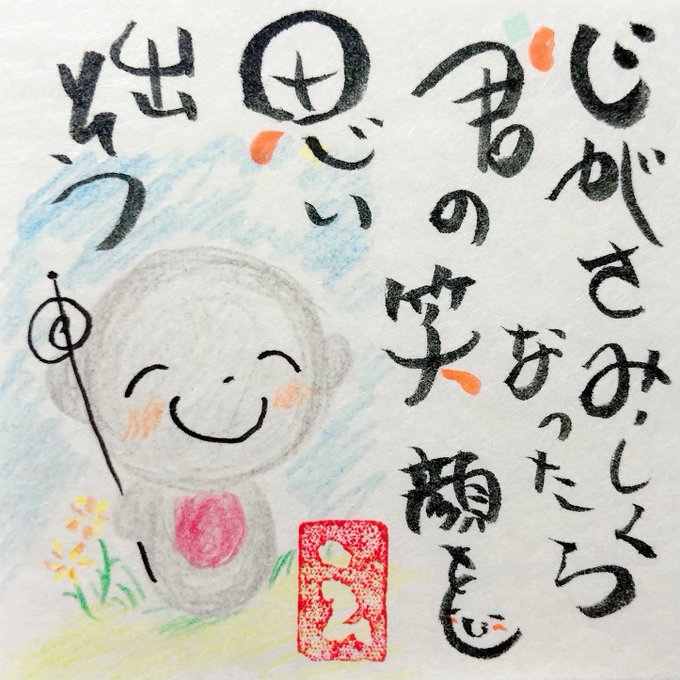 心がさみしく
なったら
君の笑顔を
思い
出そう